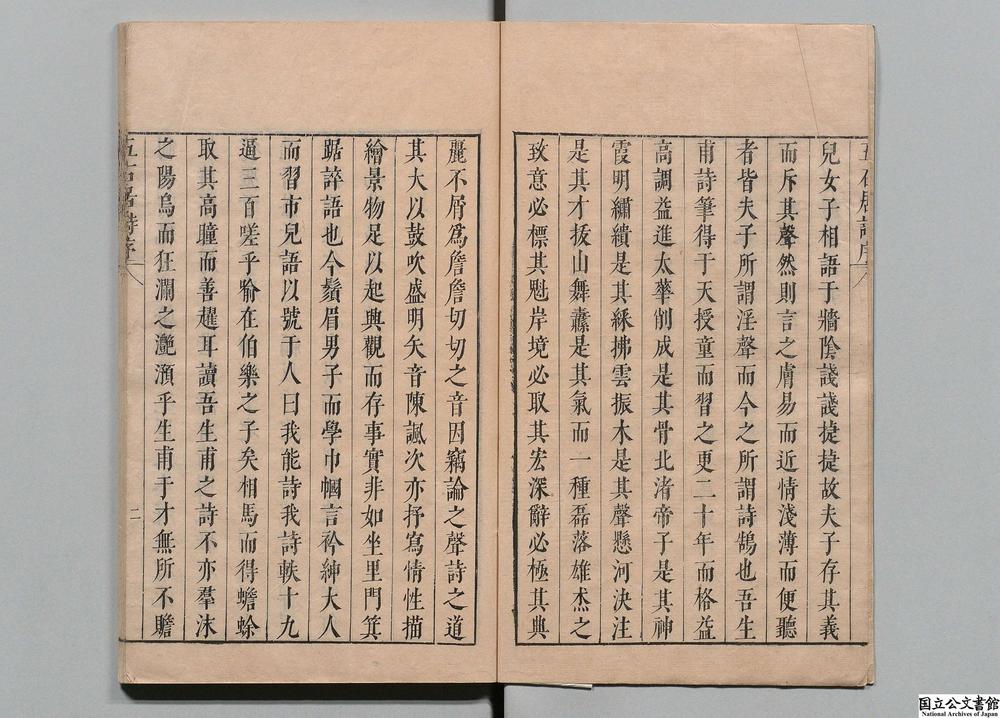 兒女子相語于牆陰諓諓捷捷故夫子存其義
而斥其聲然則言之膚易而近情淺薄而便聽
者皆夫子所謂淫聲而今之所謂詩鵠也吾生
甫詩筆得于天授童而習之更二十年而格益
高調益進太華削成是其骨北渚帝子是其神
霞明繡繢是其綵拂雲振木是其聲懸河決注
是其才拔山舞纛是其氣而一種磊落雄杰之
致意必標其魁岸境必取其宏深辭必極其典
麗不屑爲詹詹切切之音因竊論之聲詩之道
其大以鼓吹盛明矢音陳諷次亦抒寫情性描
繪景物足以起興觀而存事實非如坐里門箕
踞誶語也今鬚眉男子而學巾幗言衿紳大人
而習市兒語以號于人曰我能詩我詩軼十九
逼三百嗟乎喻在伯樂之子矣相馬而得蟾蜍
取其高瞳而善趯耳讀吾生甫之詩不亦羣沫
之陽烏而狂瀾之灔澦乎生甫于才無所不贍
五石居詩序
二
国立公文書館
National Archives of Japan